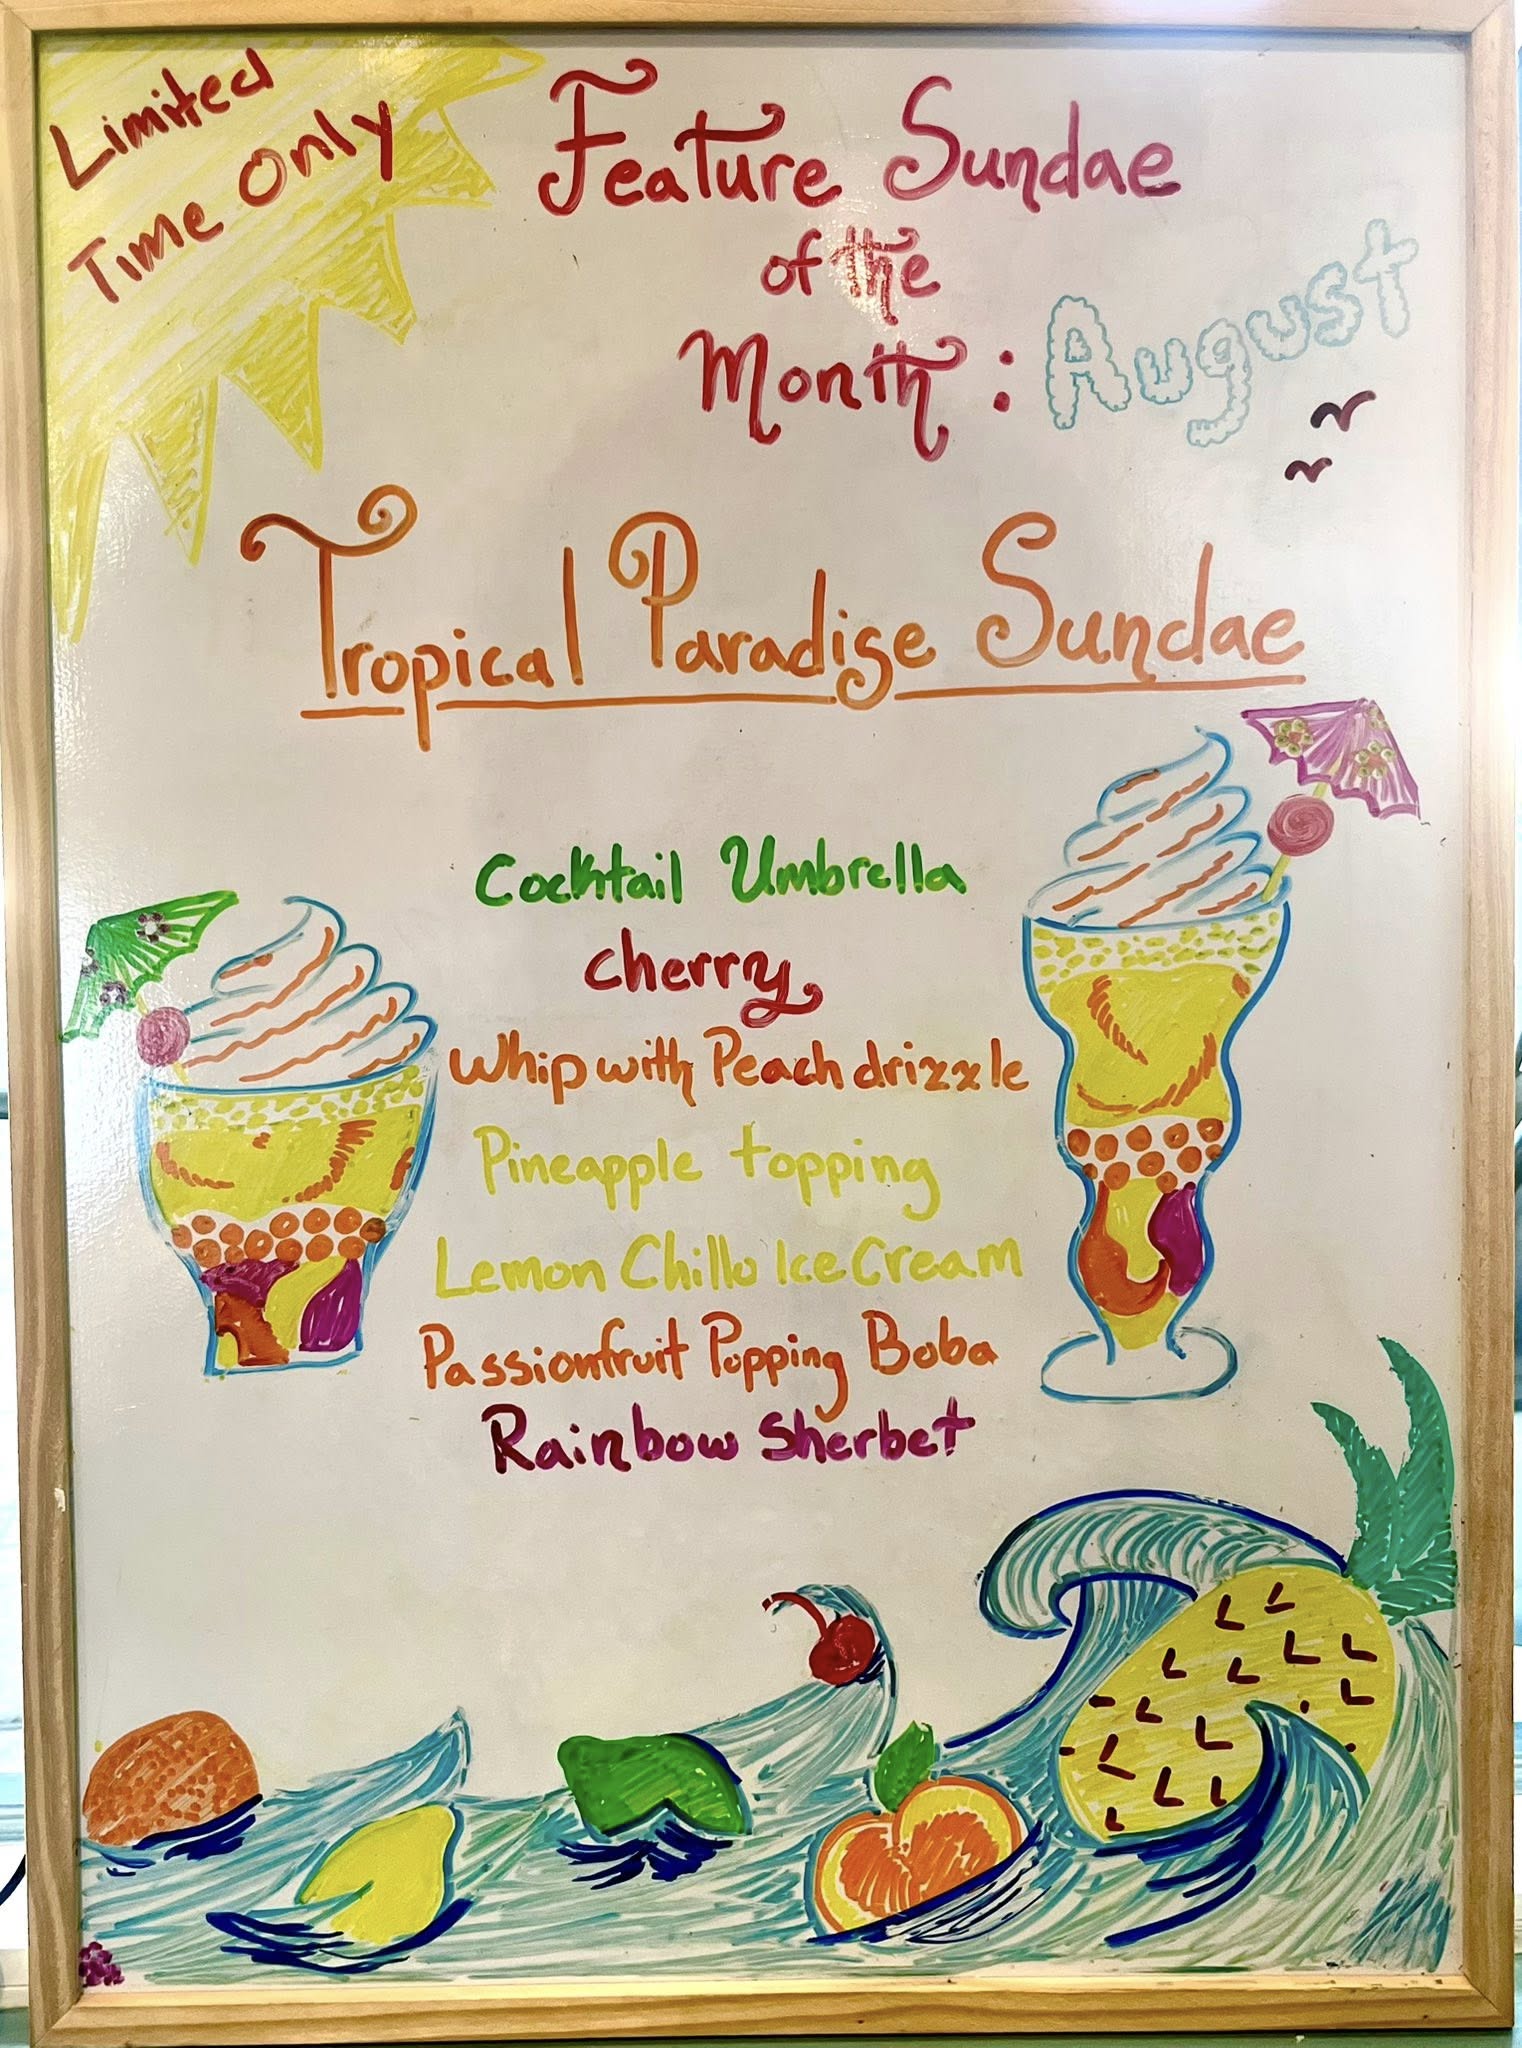 Limited
Time Only
Feature Sundae
of the
Month: August
Tropical Paradise Sundae
Cocktail Umbrella
cherry
Whip with Peach drizzle
Pineapple topping
Lemon Chillo Ice Cream
Passionfruit Popping Boba
Rainbow Sherbet